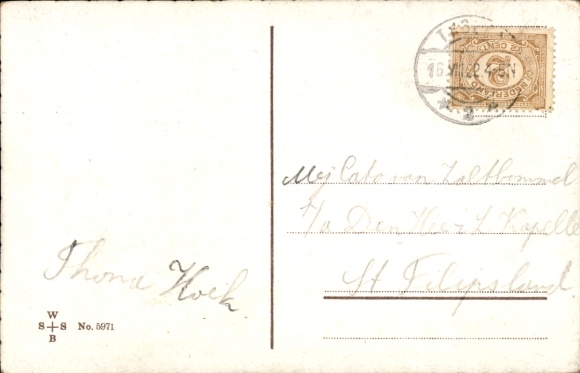 16 VIII 22 4-5N
2
2 CENT
NEDERLAND
Mej Cato van Zaltbommel
p/a Den Heer L Kapelle
St Filipsland
Thona Hoek
W
S S No. 5971
B